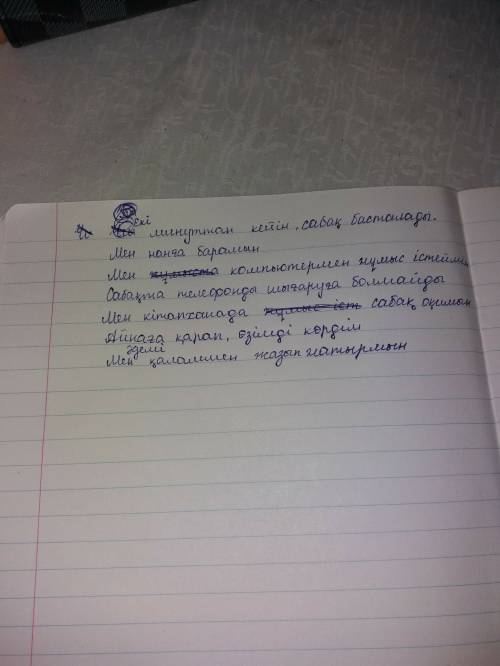 Екі минуттан кейін, сабақ басталады.
Мен нанға барамын
Мен компьютермен жұмыс істеймін
Сабақта телефонды шығаруға болмайды
Мен кітапханада сабақ оқимын
Айнаға қарап, өзімді көрдім
әдемі
Мен қаламмен жазып жатырмын